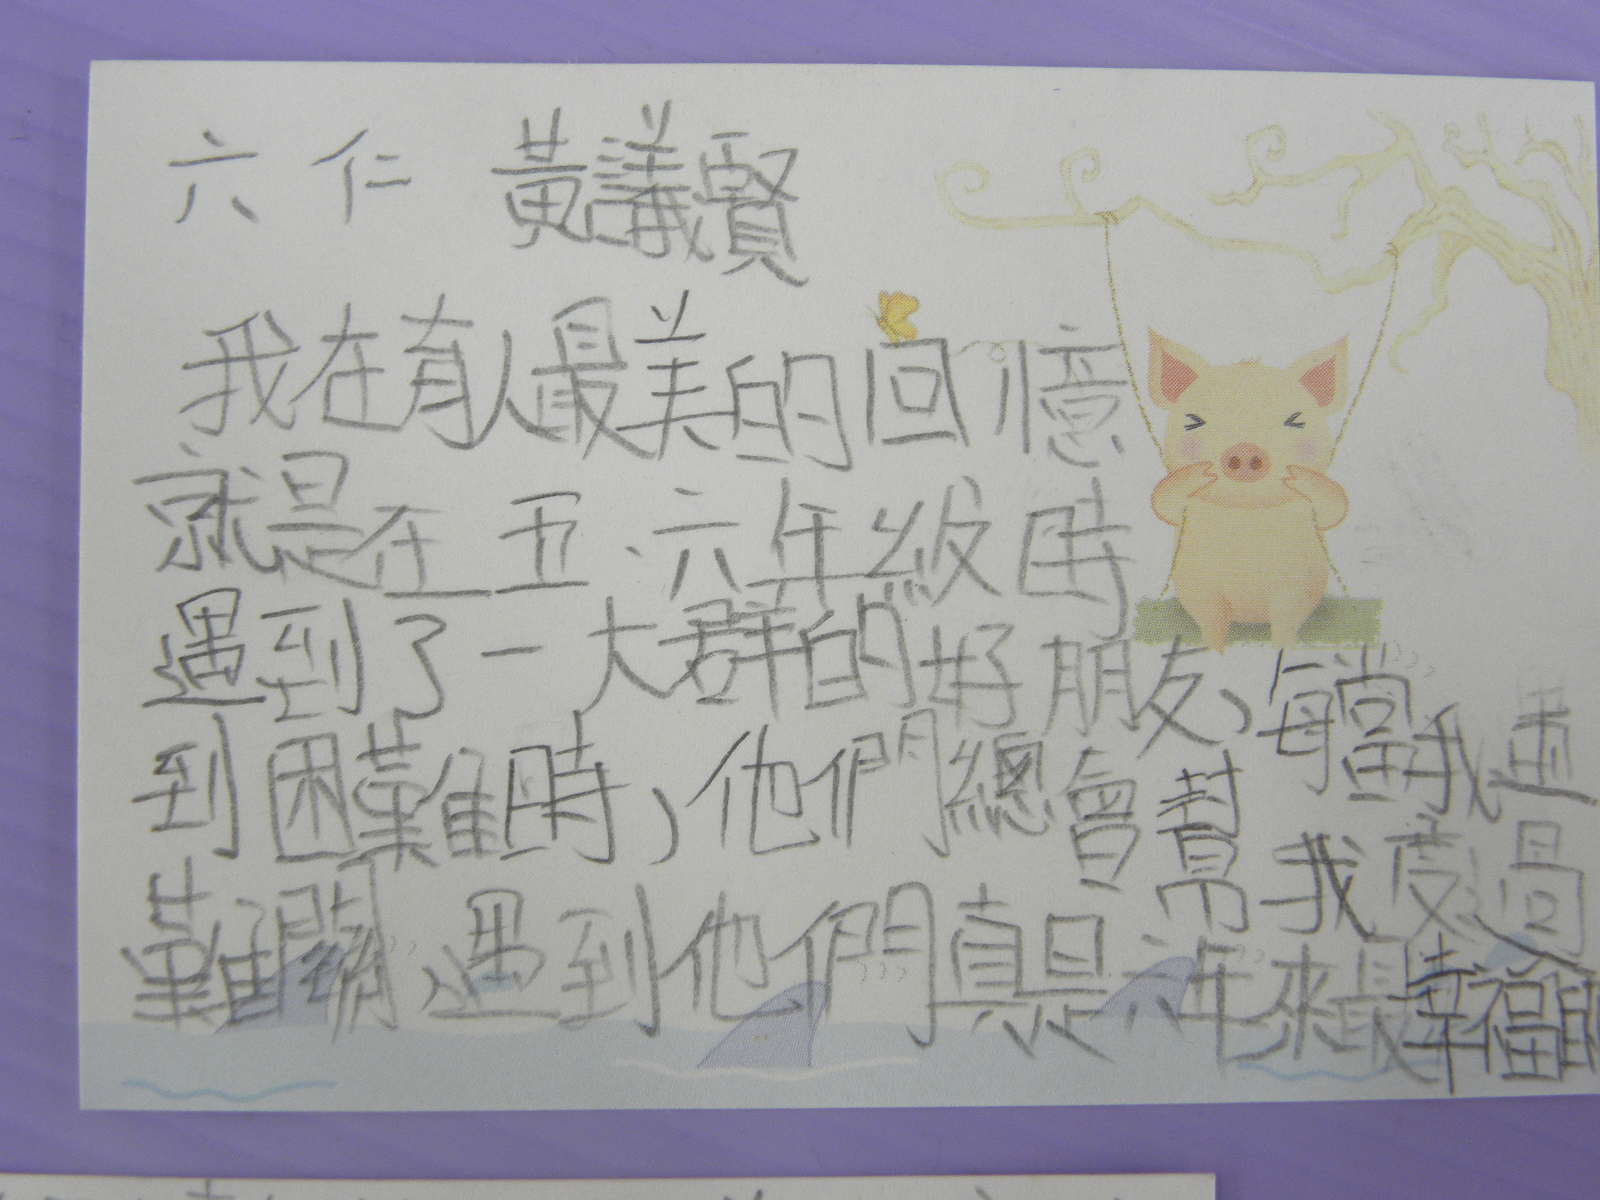 六 仁 黃議賢
我在有人最美的回憶
就是在五、六年級時
遇到了一大群的好朋友,每當我遇
到困難時,他們總會幫我度過
難關,遇到他們真是六年來最幸福的